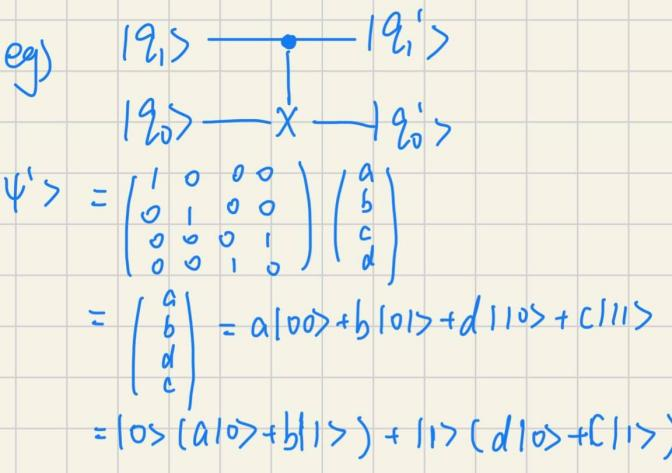 eg) |q₁> |q₁'>
|q₀> X |q₀'>
ψ'> = ( 1 0 0 0 ) ( a )
( 0 1 0 0 ) ( b )
( 0 0 0 1 ) ( c )
( 0 0 1 0 ) ( d )
= ( a
b
d
c ) = a|00>+b|01>+d|10>+c|11>
= |0>(a|0>+b|1>) + |1>(d|0>+c|1>)